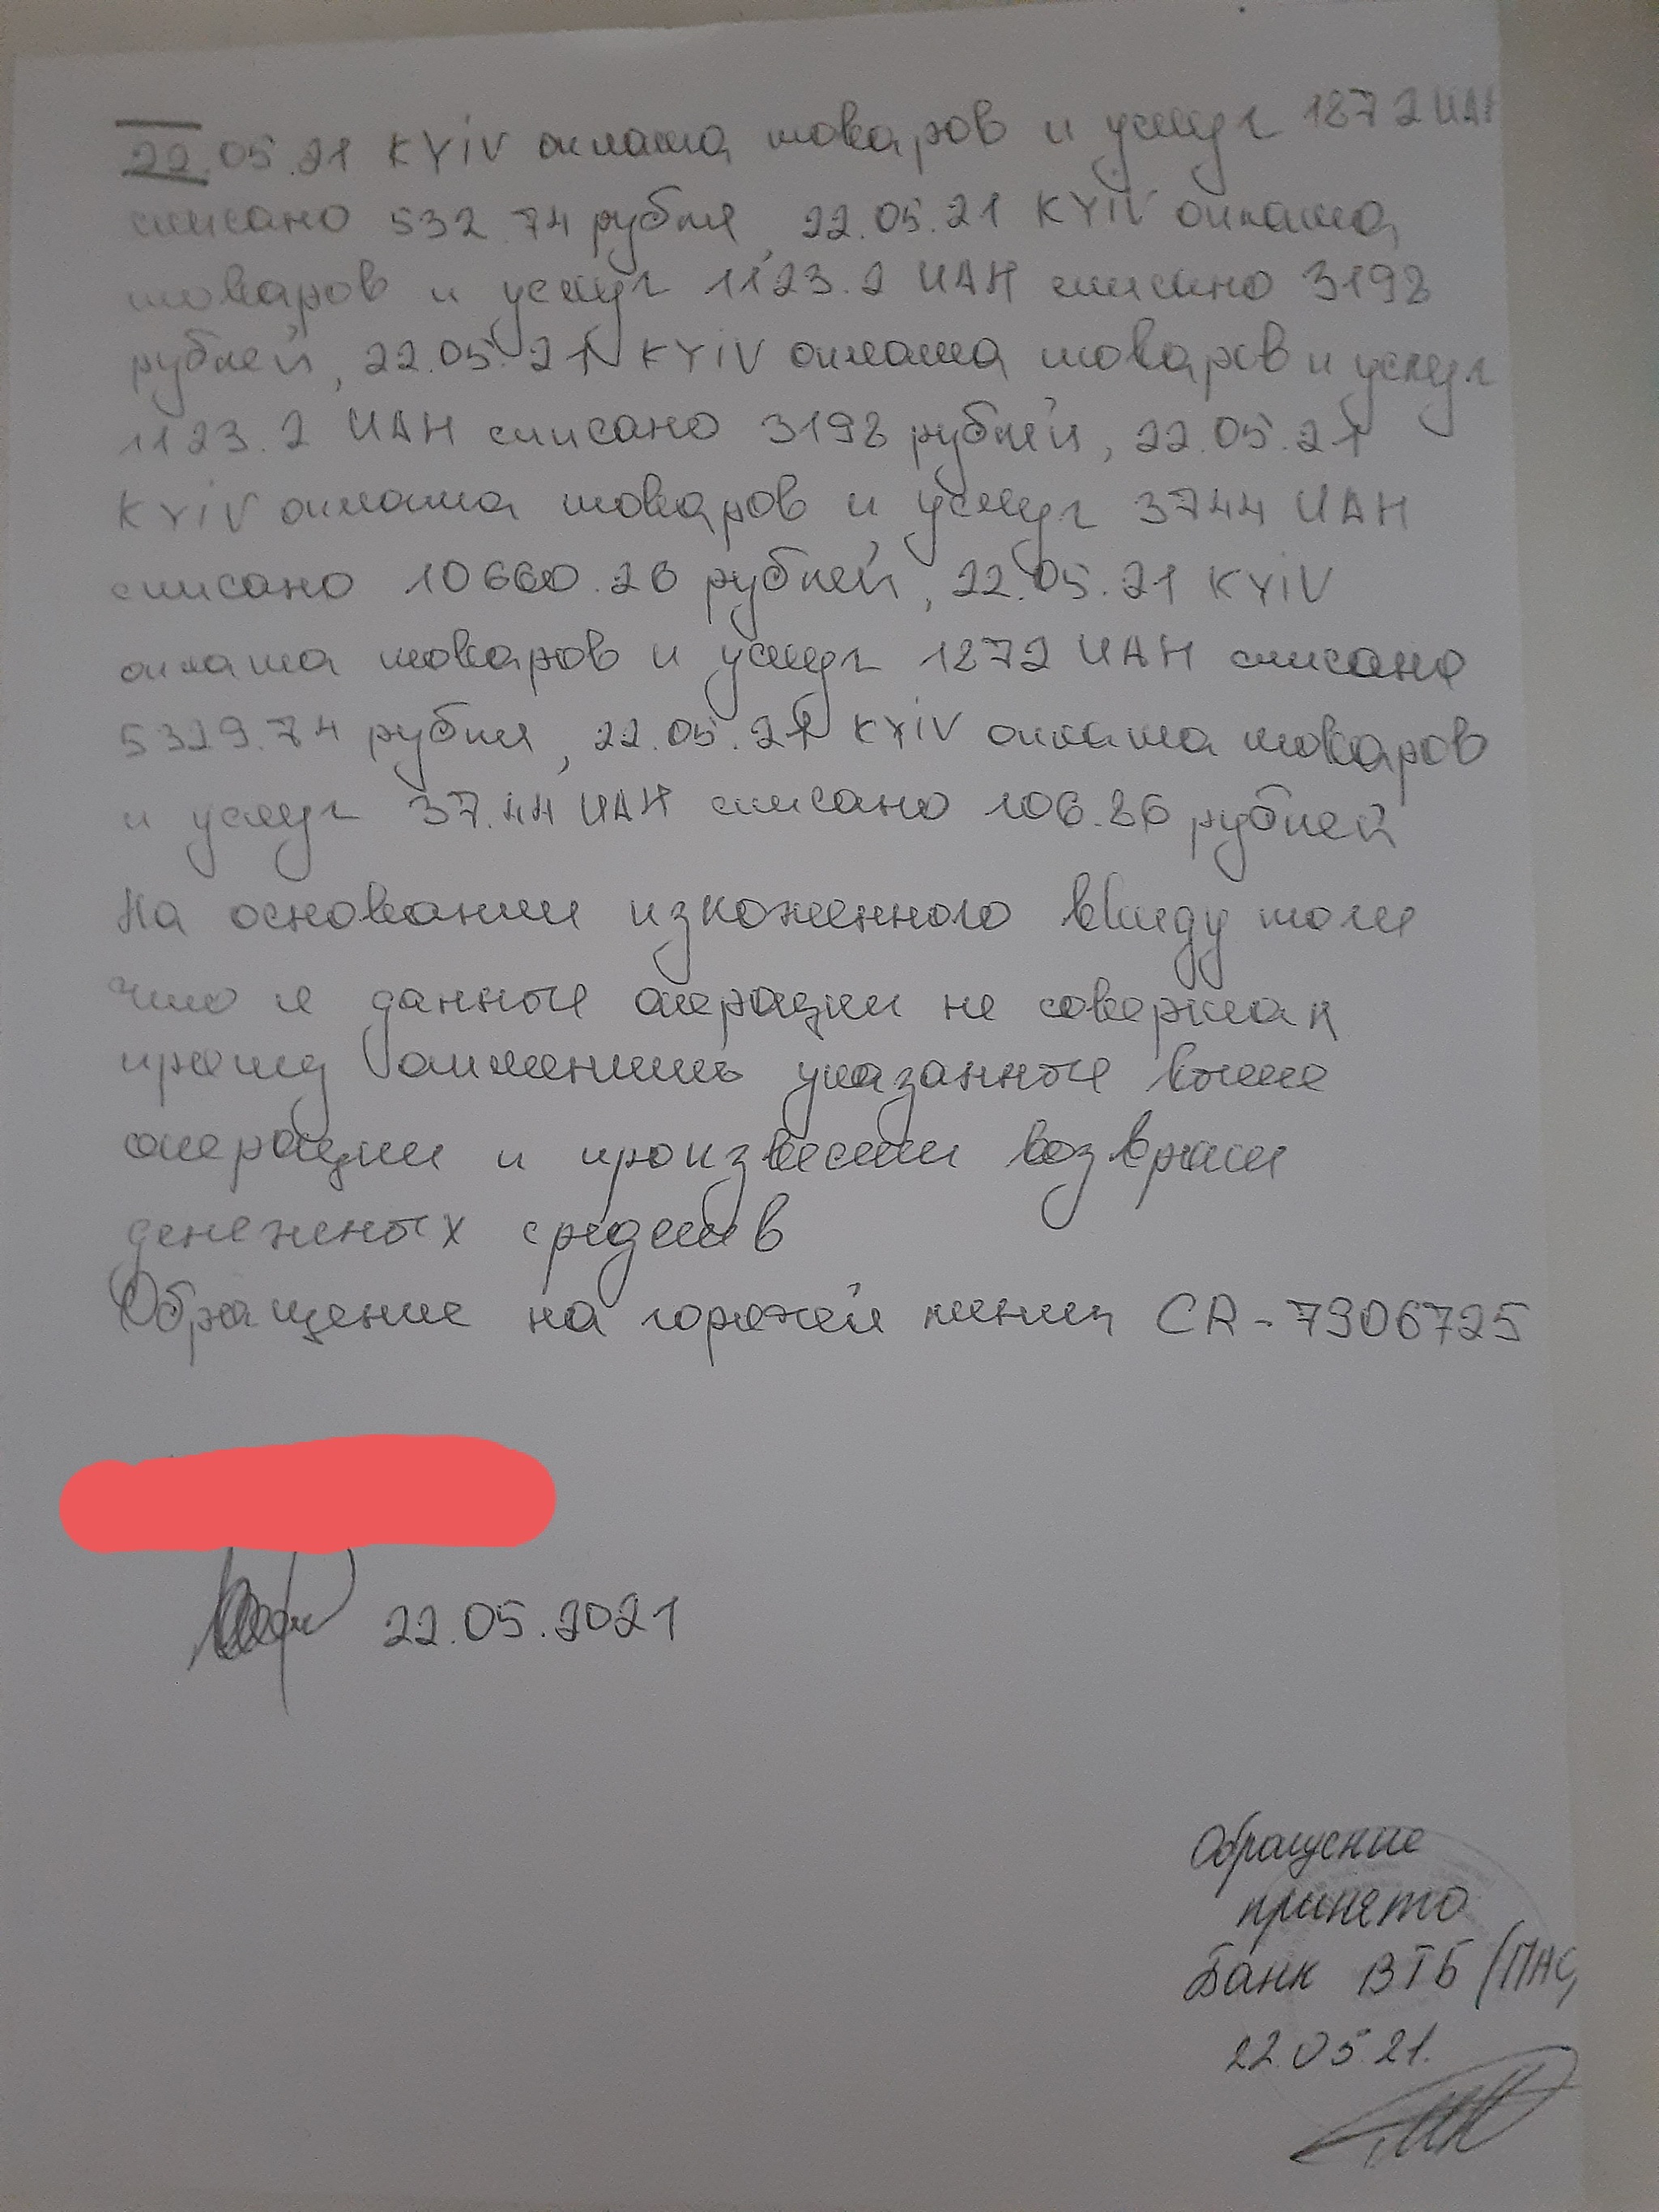 22.05.21 KYiV оплата товаров и услуг 1872 UAH
списано 532.74 рубля, 22.05.21 KYiV оплата
товаров и услуг 1123.2 UAH списано 3198
рублей, 22.05.21 KYiV оплата товаров и услуг
1123.2 UAH списано 3198 рублей, 22.05.21
KYiV оплата товаров и услуг 3744 UAH
списано 10660.26 рублей, 22.05.21 KYiV
оплата товаров и услуг 1872 UAH списано
5329.74 рубля, 22.05.21 KYiV оплата товаров
и услуг 37.44 UAH списано 106.86 рублей
На основании изложенного ввиду того
что я данные операции не совершал
прошу отменить указанные выше
операции и произвести возврат
денежных средств
Обращение на горячей линии CR-7906725
22.05.2021
Обращение
принято
Банк ВТБ (ПАО)
22.05.21.